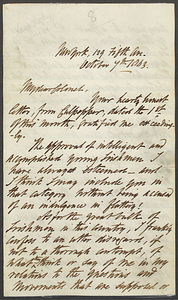 8
New York, 129 Fifth Av.
October 7th, 1863.
My dear Colonel,
Your hearty, honest
letter, from Culpepper, dated the 1st
of this month, gratified me exceeding-
ly.
The approval of intelligent and
accomplished young Irishmen I
have always esteemed — and
I think I may include you in
that category without being accused
of an indulgence in flattery!
As for the great bulk of
Irishmen in this country, I frankly
confess to an utter disregard, if
not a thorough contempt, of
what they think or say of me in my
relations to the questions and
movements that are supported or